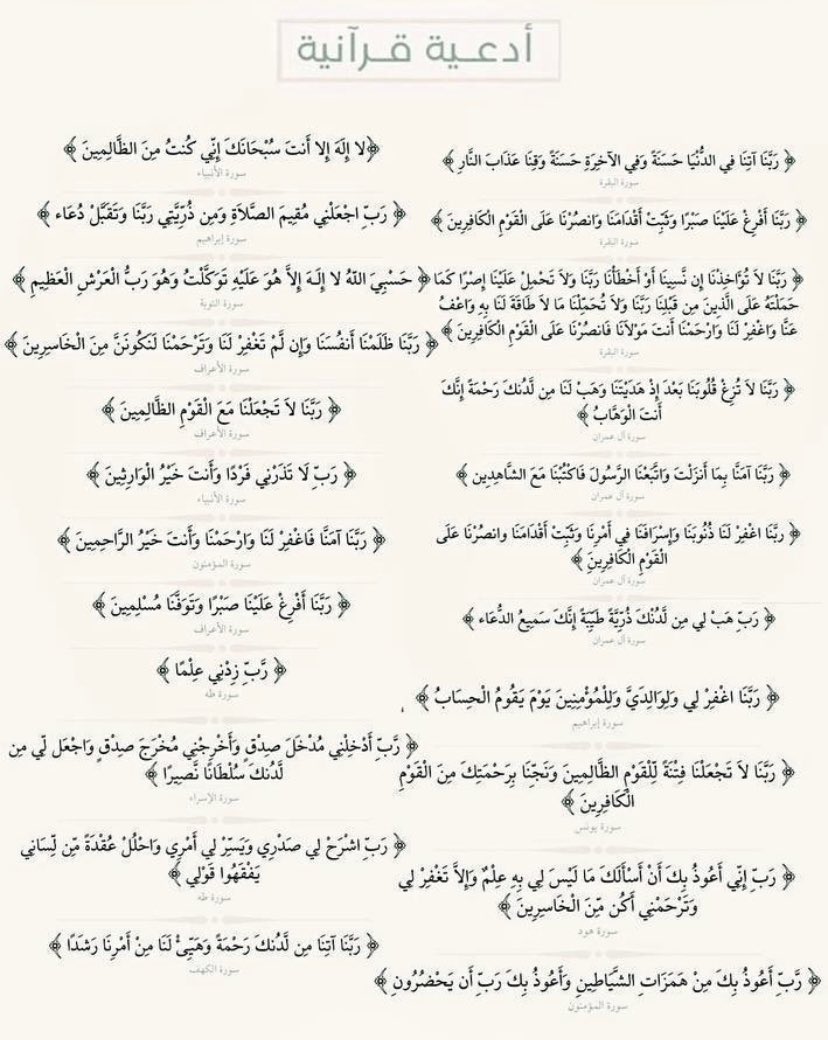 أدعـيـة قـرآنية
﴿ رَبَّنَا آتِنَا فِي الدُّنْيَا حَسَنَةً وَفِي الآخِرَةِ حَسَنَةً وَقِنَا عَذَابَ النَّارِ ﴾
سورة البقرة
﴿ رَبَّنَا أَفْرِغْ عَلَيْنَا صَبْرًا وَثَبِّتْ أَقْدَامَنَا وَانصُرْنَا عَلَى الْقَوْمِ الْكَافِرِينَ ﴾
سورة البقرة
﴿ رَبَّنَا لاَ تُؤَاخِذْنَا إِن نَّسِينَا أَوْ أَخْطَأْنَا رَبَّنَا وَلاَ تَحْمِلْ عَلَيْنَا إِصْرًا كَمَا
حَمَلْتَهُ عَلَى الَّذِينَ مِن قَبْلِنَا رَبَّنَا وَلاَ تُحَمِّلْنَا مَا لاَ طَاقَةَ لَنَا بِهِ وَاعْفُ
عَنَّا وَاغْفِرْ لَنَا وَارْحَمْنَا أَنتَ مَوْلاَنَا فَانصُرْنَا عَلَى الْقَوْمِ الْكَافِرِينَ ﴾
سورة البقرة
﴿ رَبَّنَا لاَ تُزِغْ قُلُوبَنَا بَعْدَ إِذْ هَدَيْتَنَا وَهَبْ لَنَا مِن لَّدُنكَ رَحْمَةً إِنَّكَ
أَنتَ الْوَهَّابُ ﴾
سورة آل عمران
﴿ رَبَّنَا آمَنَّا بِمَا أَنزَلْتَ وَاتَّبَعْنَا الرَّسُولَ فَاكْتُبْنَا مَعَ الشَّاهِدِين ﴾
سورة آل عمران
﴿ ربَّنَا اغْفِرْ لَنَا ذُنُوبَنَا وَإِسْرَافَنَا فِي أَمْرِنَا وَثَبِّتْ أَقْدَامَنَا وانصُرْنَا عَلَى
الْقَوْمِ الْكَافِرِينَ ﴾
سورة آل عمران
﴿ رَبِّ هَبْ لِي مِن لَّدُنْكَ ذُرِّيَّةً طَيِّبَةً إِنَّكَ سَمِيعُ الدُّعَاء ﴾
سورة آل عمران
﴿ رَبَّنَا اغْفِرْ لِي وَلِوَالِدَيَّ وَلِلْمُؤْمِنِينَ يَوْمَ يَقُومُ الْحِسَابُ ﴾
سورة إبراهيم
﴿ رَبَّنَا لاَ تَجْعَلْنَا فِتْنَةً لِّلْقَوْمِ الظَّالِمِينَ وَنَجِّنَا بِرَحْمَتِكَ مِنَ الْقَوْمِ
الْكَافِرِينَ ﴾
سورة يونس
﴿ رَبِّ إِنِّي أَعُوذُ بِكَ أَنْ أَسْأَلَكَ مَا لَيْسَ لِي بِهِ عِلْمٌ وَإِلاَّ تَغْفِرْ لِي
وَتَرْحَمْنِي أَكُن مِّنَ الْخَاسِرِينَ ﴾
سورة هود
﴿ رَّبِّ أَعُوذُ بِكَ مِنْ هَمَزَاتِ الشَّيَاطِينِ وَأَعُوذُ بِكَ رَبِّ أَن يَحْضُرُونِ ﴾
سورة المؤمنون
﴿لا إِلَهَ إِلا أَنتَ سُبْحَانَكَ إِنِّي كُنتُ مِنَ الظَّالِمِينَ ﴾
سورة الأنبياء
﴿ رَبِّ اجْعَلْنِي مُقِيمَ الصَّلاَةِ وَمِن ذُرِّيَّتِي رَبَّنَا وَتَقَبَّلْ دُعَاء ﴾
سورة إبراهيم
﴿ حَسْبِيَ اللّهُ لا إِلَـهَ إِلاَّ هُوَ عَلَيْهِ تَوَكَّلْتُ وَهُوَ رَبُّ الْعَرْشِ الْعَظِيمِ ﴾
سورة التوبة
﴿ رَبَّنَا ظَلَمْنَا أَنفُسَنَا وَإِن لَّمْ تَغْفِرْ لَنَا وَتَرْحَمْنَا لَنَكُونَنَّ مِنَ الْخَاسِرِينَ ﴾
سورة الأعراف
﴿ رَبَّنَا لاَ تَجْعَلْنَا مَعَ الْقَوْمِ الظَّالِمِينَ ﴾
سورة الأعراف
﴿ رَبِّ لَا تَذَرْنِي فَرْدًا وَأَنتَ خَيْرُ الْوَارِثِينَ ﴾
سورة الأنبياء
﴿ رَبَّنَا آمَنَّا فَاغْفِرْ لَنَا وَارْحَمْنَا وَأَنتَ خَيْرُ الرَّاحِمِينَ ﴾
سورة المؤمنون
﴿ رَبَّنَا أَفْرِغْ عَلَيْنَا صَبْرًا وَتَوَفَّنَا مُسْلِمِينَ ﴾
سورة الأعراف
﴿ رَّبِّ زِدْنِي عِلْمًا ﴾
سورة طه
﴿ رَّبِّ أَدْخِلْنِي مُدْخَلَ صِدْقٍ وَأَخْرِجْنِي مُخْرَجَ صِدْقٍ وَاجْعَل لِّي مِن
لَّدُنكَ سُلْطَانًا نَّصِيرًا ﴾
سورة الإسراء
﴿ رَبِّ اشْرَحْ لِي صَدْرِي وَيَسِّرْ لِي أَمْرِي وَاحْلُلْ عُقْدَةً مِّن لِّسَانِي
يَفْقَهُوا قَوْلِي ﴾
سورة طه
﴿ رَبَّنَا آتِنَا مِن لَّدُنكَ رَحْمَةً وَهَيِّئْ لَنَا مِنْ أَمْرِنَا رَشَدًا ﴾
سورة الكهف